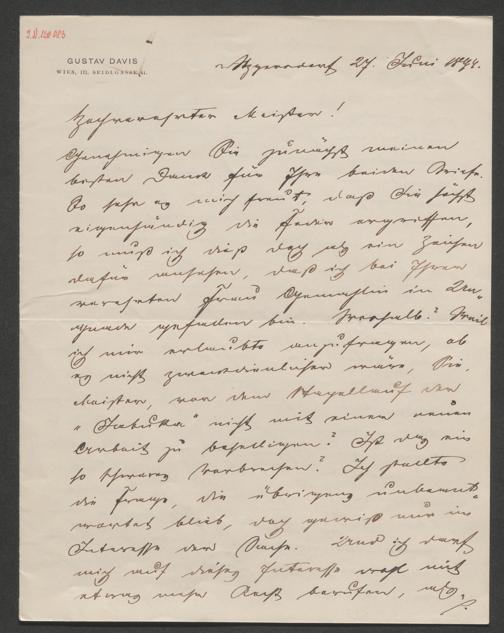 I.N. 120.083
GUSTAV DAVIS
WIEN, III. SEIDLGASSE
Atzgersdorf 27. Juni 1894.
Hochverehrter Meister!
Genehmigen Sie zunächst meinen
besten Dank für Ihre beiden Briefe.
So sehr es mich freut, daß Sie höchst
eigenhändig die Feder ergriffen,
so muß ich dieß doch als ein Zeichen
dafür ansehen, daß ich bei Ihrer
verehrten Frau Gemahlin in Un-
gnade gefallen bin. Weshalb? Weil
ich mir erlaubte anzufragen, ob
es nicht zweckdienlicher wäre, Sie,
Meister, vor dem Stapellauf der
"Jabuka" nicht mit einer neuen
Arbeit zu behelligen? Ist das ein
so schweres Verbrechen? Ich stellte
die Frage, die übrigens unbeant-
wortet blieb, doch gewiß nur im
Interesse der Sache. Und ich darf
mich auf dieses Interesse wohl mit
etwas mehr Recht berufen, als